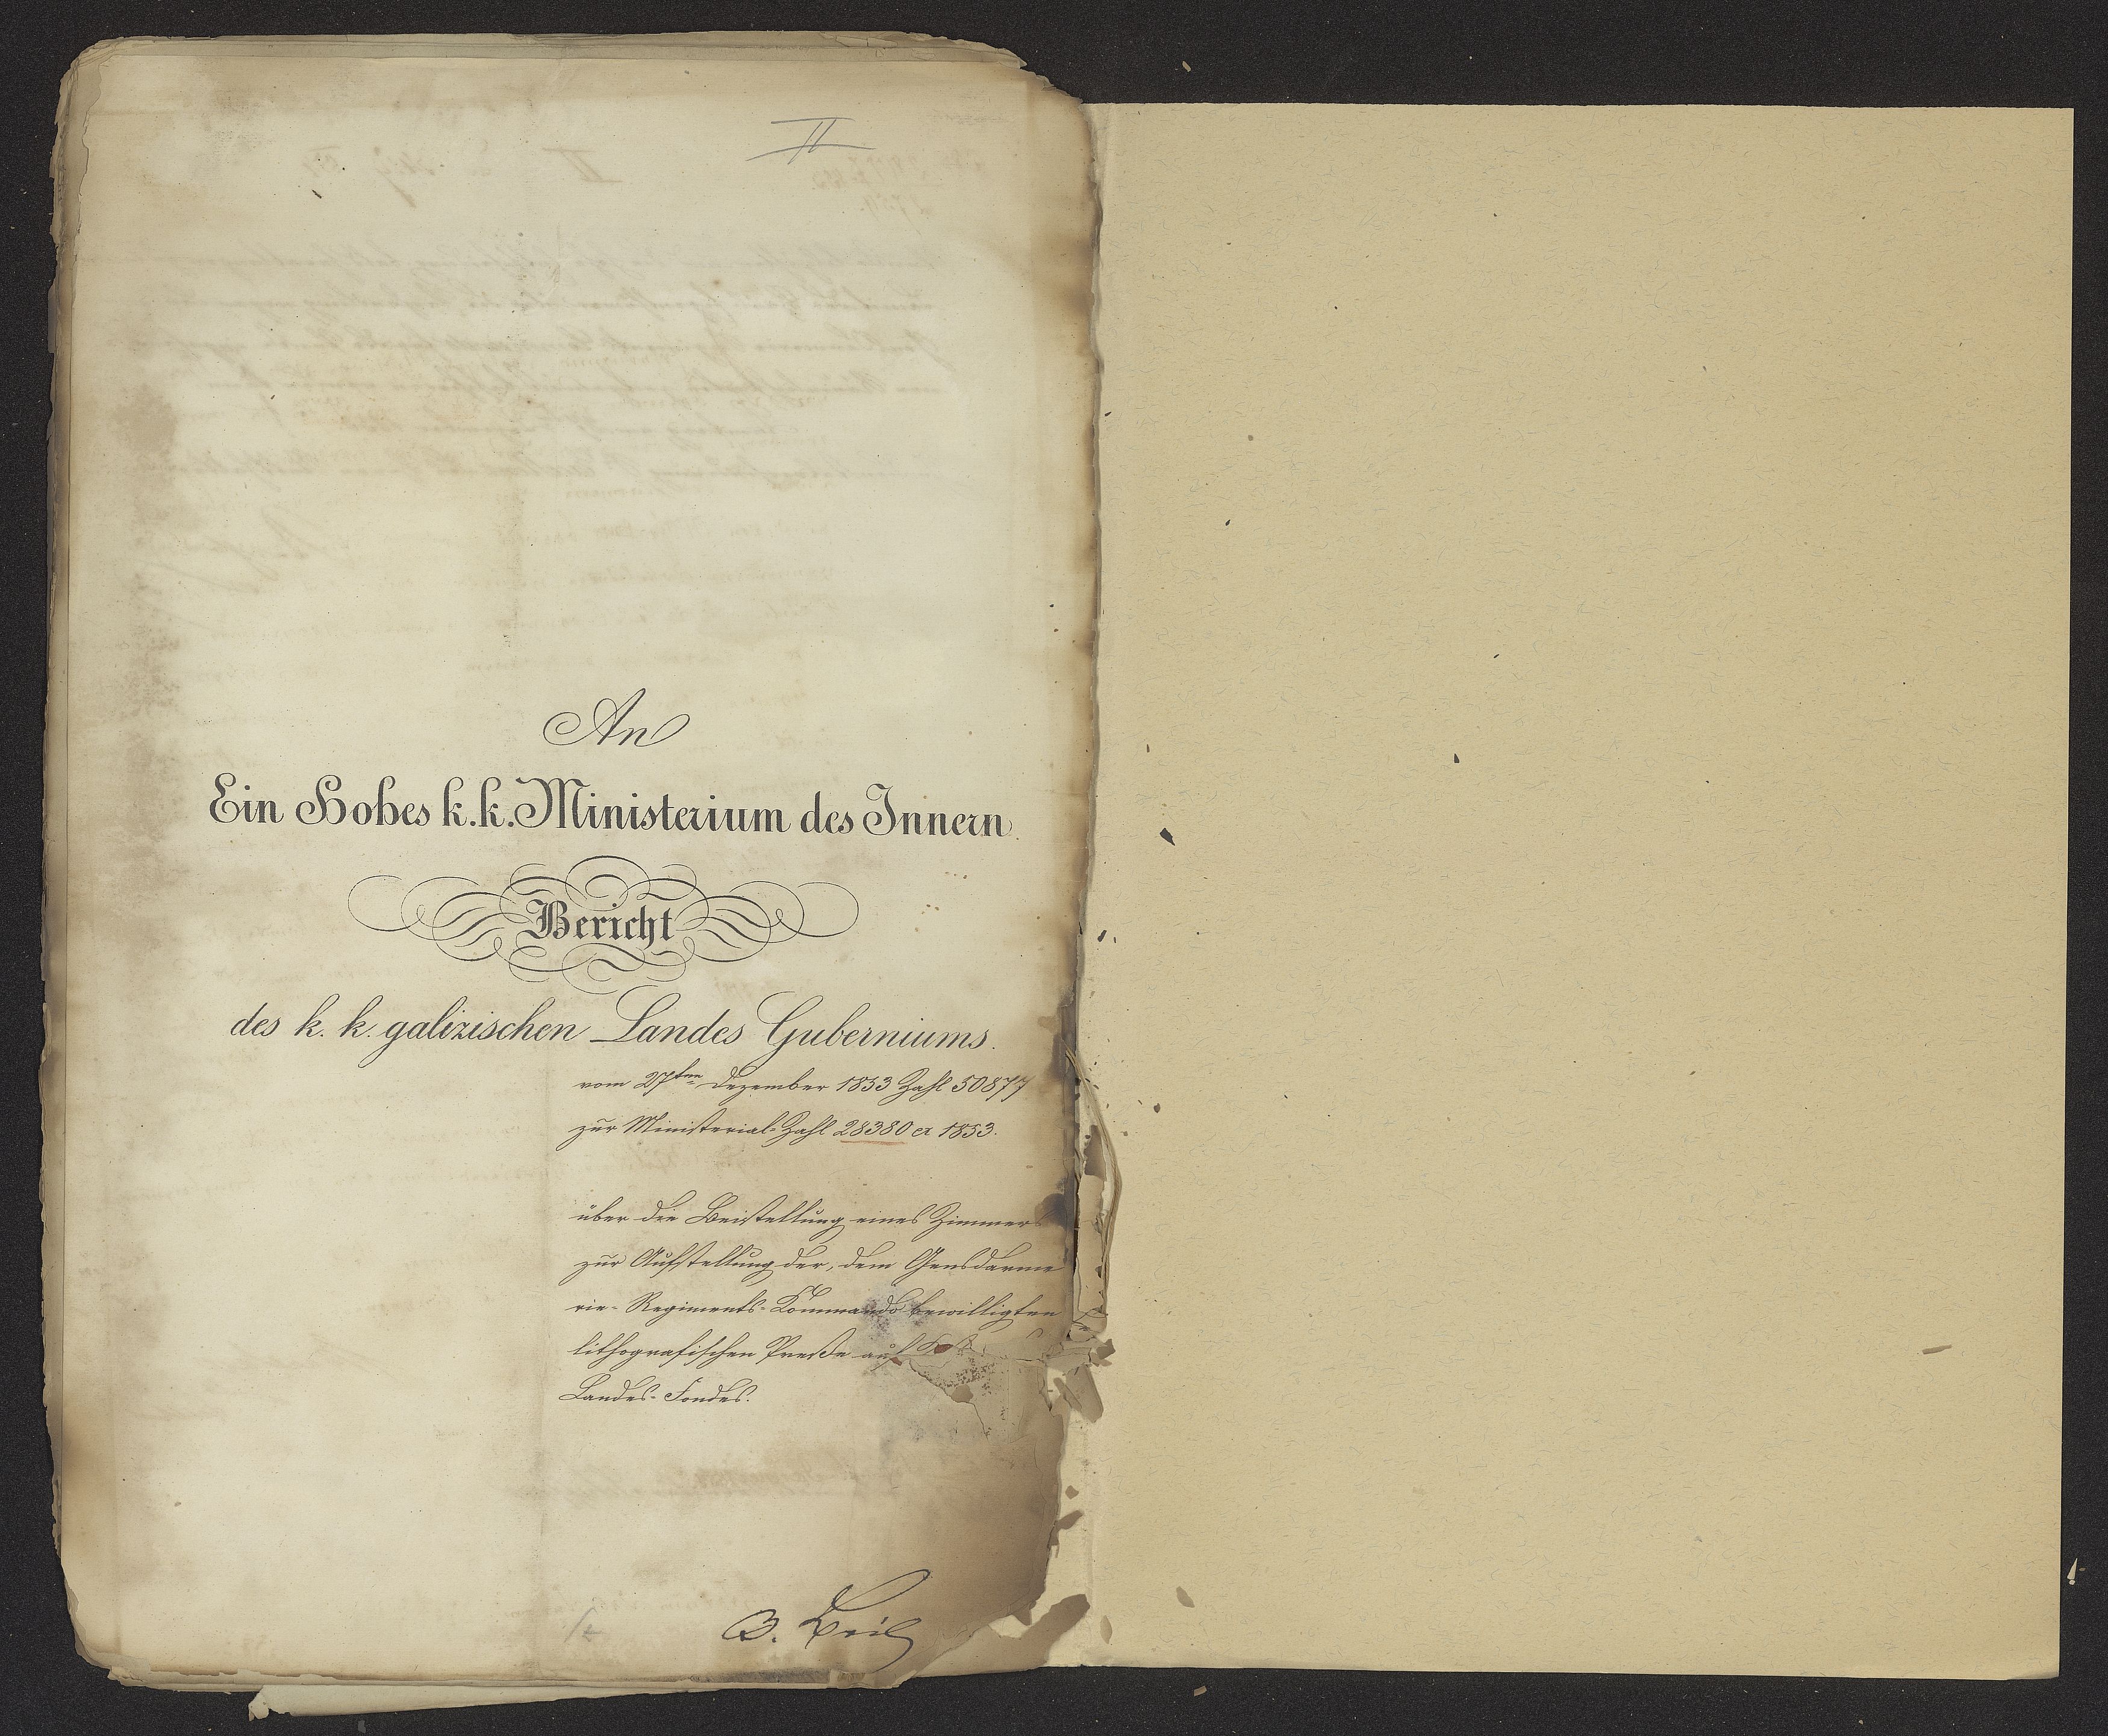 II
An
Ein Hohes k. k. Ministerium des Innern.
Bericht
des k. k. galizischen Landes Guberniums.
vom 27ten Dezember 1853 Zahl 50877
zur Ministerial-Zahl 28380 ex 1853.
über die Beistellung eines Zimmers
zur Aufstellung der, dem Gensdarme
rie-Regiments-Kommando bewilligten
lithografischen Preße auf
Landes-Fondes.
3. Beil